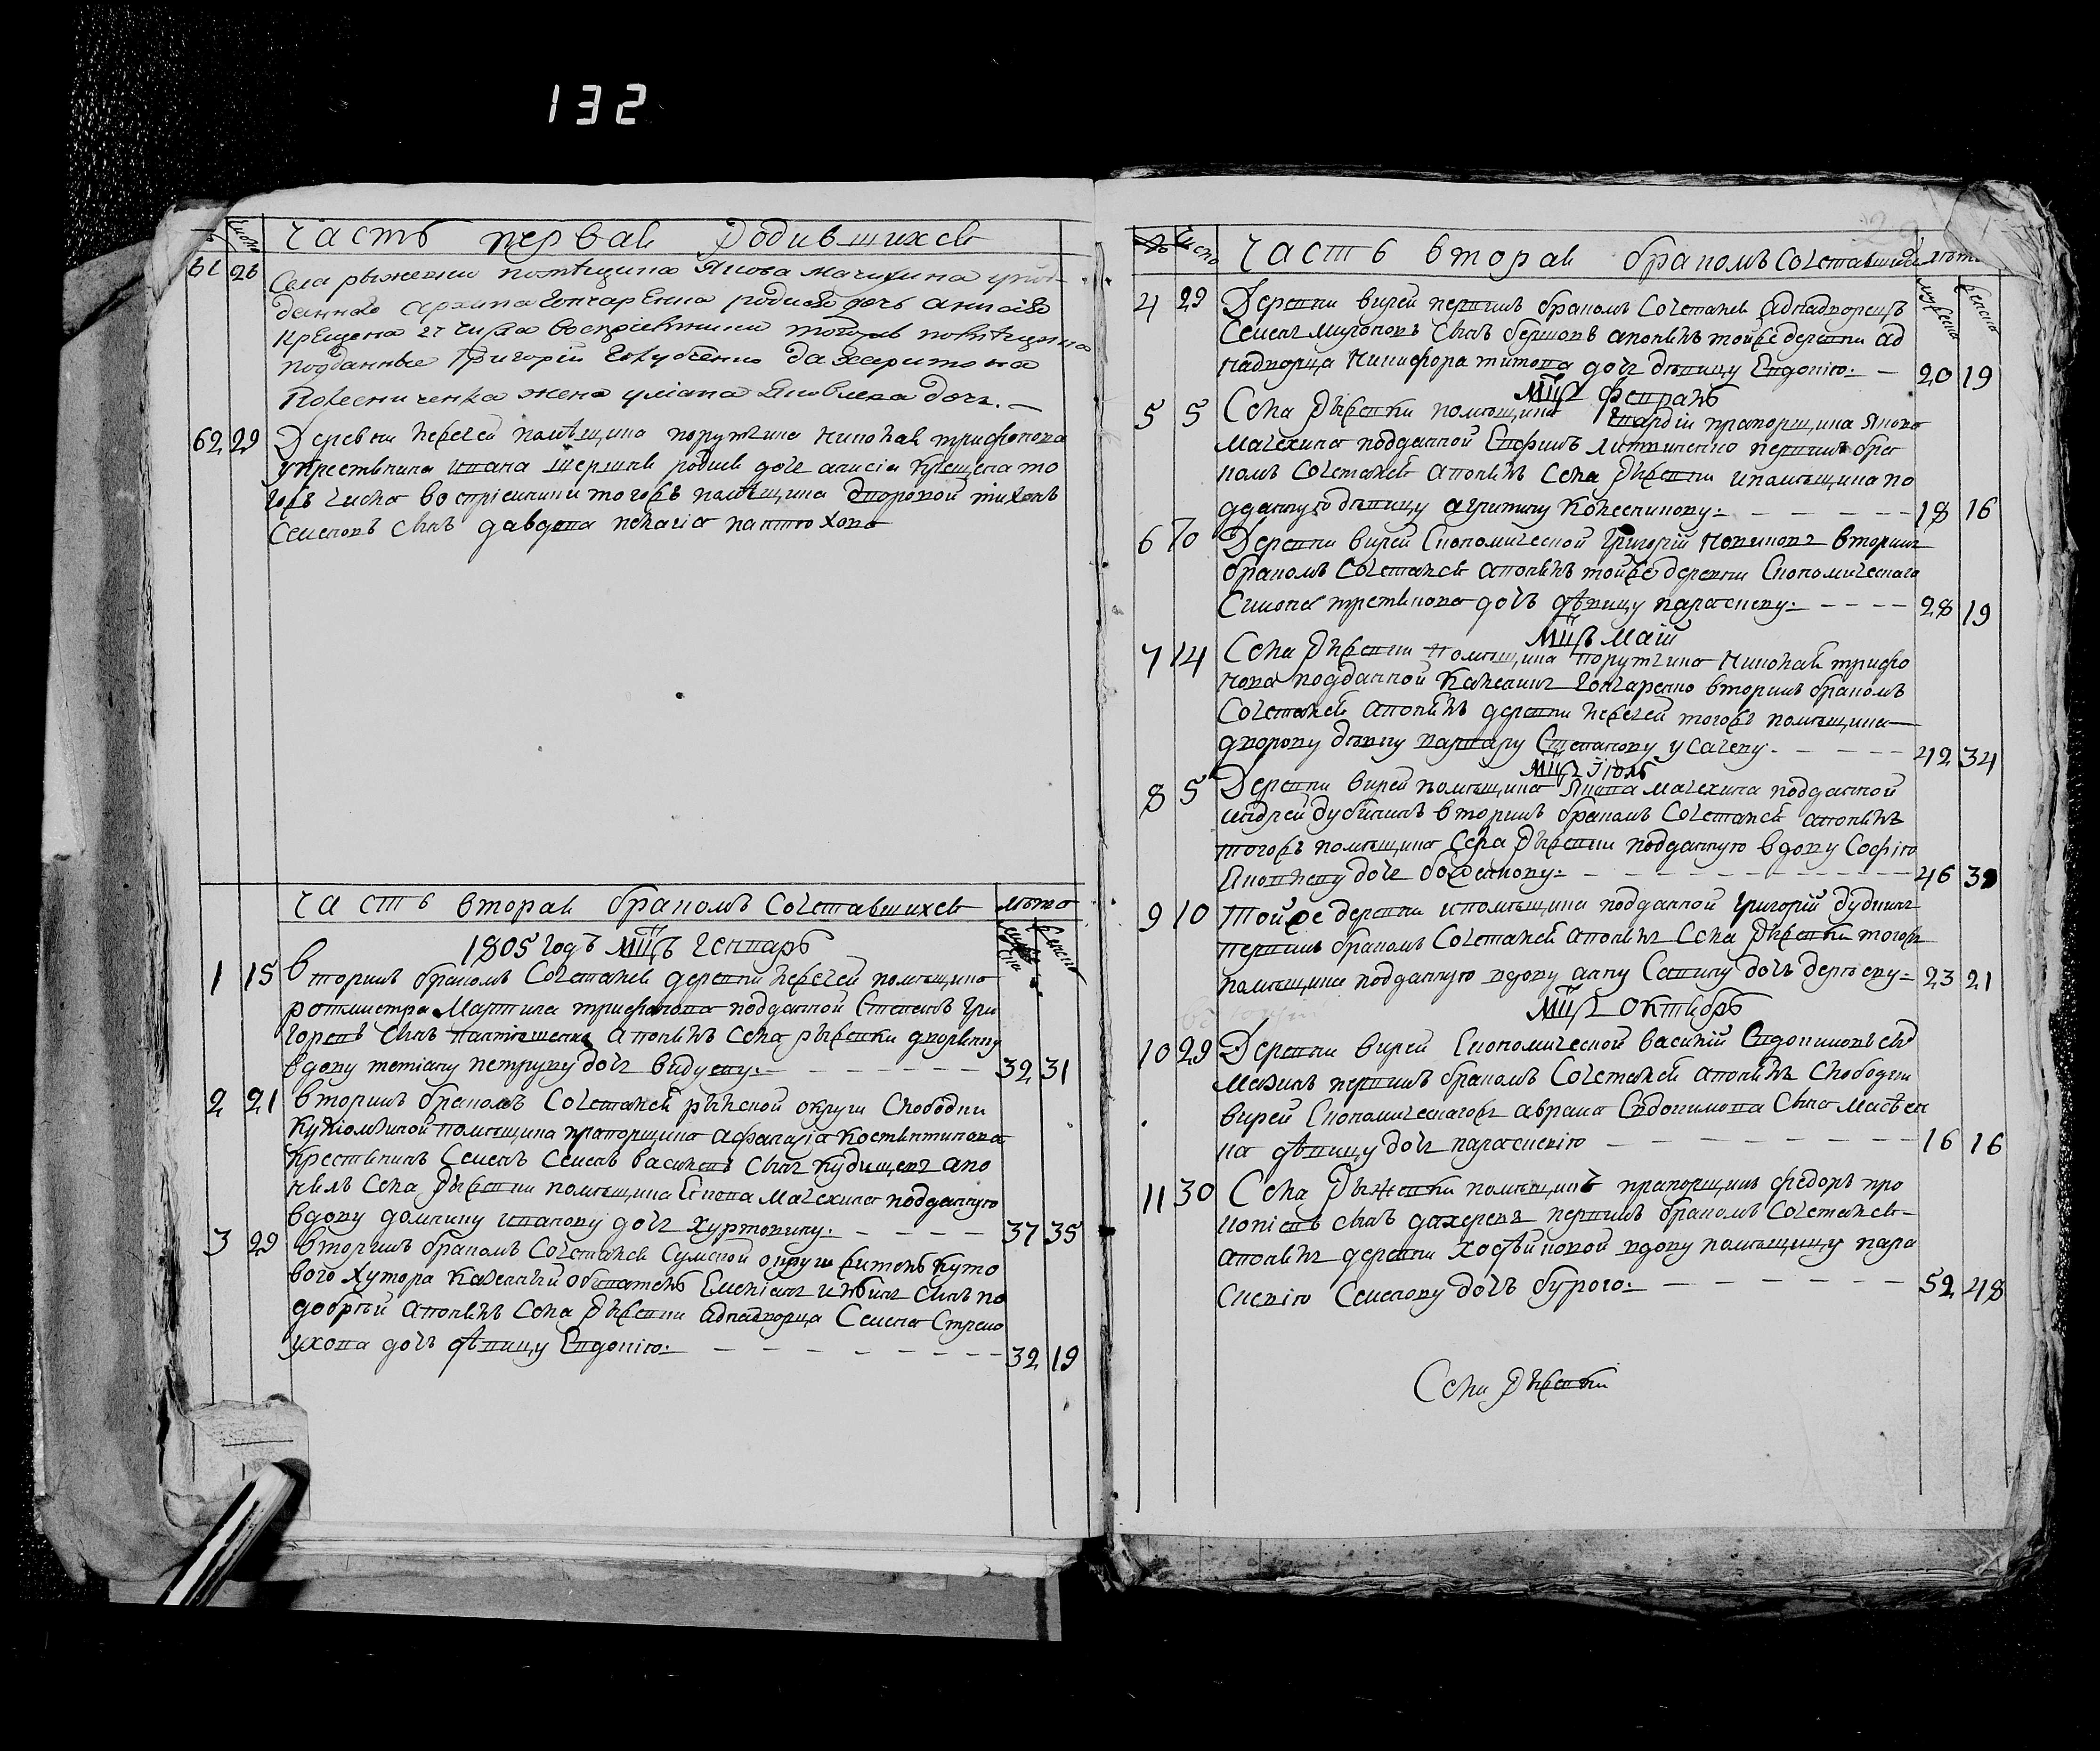 132
число
Часть первая Родившихся
61 26 Села рыжевки помѣщика Якова Мачехина
данного Архипа Гончаренка родися дочь Анисія
крещена 27 числа воспріемники тогожъ помѣщика
подданные Григорій Голубенко да харитона
Колесниченка жена уліана Яковлева дочь. —
62 29 Деревни Пекечей помѣщика порутчика Николая трифонова
у крестьянина ивана родися дочь анисія крещена то
гожъ числа воспріемники тогожъ помѣщика дворовой тихонъ
Семеновъ сынъ давдова
Часть вторая бракомъ Сочетавшихся лѣта
1805 Годъ Мцъ Генварь
мужеска женска
1 15 вторымъ бракомъ Сочетался деревни помѣщика
ротмистра Мартина трифонова подданной Степанъ Гри
горевъ Сынъ а понялъ Села рыжевки дворянку
вдову тетіану петрову дочь 32 31
2 21 вторымъ бракомъ Сочетался рылской округи Слободки
помѣщика прапорщика афанасія Костянтинова
крестьянинъ Семенъ Васильевъ Сынъ Кудинцевъ апо
нялъ Села Рыжевки помѣщика Якова Мачехина подданную
вдову домникиу иванову дочь хуртовину. — 37 35
3 29 вторымъ бракомъ Сочетался Сумской округи житель Куто
вого Хутора Казенный обыватель Емеліанъ Сынъ
добрый а понялъ Села Рыжевки аднадворца Семена Стрело
ухова дочь дѣвицу Евдокію. — 32 19
число Часть вторая бракомъ Сочетавшихся лѣта
мужеска женска
4 29 Деревни вирей первымъ бракомъ Сочетался Аднадворецъ
Семенъ Мироновъ Сынъ апонялъ тойже деревни ад
надворца Никифора титова дочь дѣвицу Евдокію. — 20 19
Мцъ Февраль
5 5 Села Рыжевки помѣщика Гвардіи прапорщика Якова
Мачехина подданной Ефимъ Литвиненко первымъ бра
комъ Сочетался а понялъ Села Рыжевки ипомѣщика по
дданную дѣвицу агритину Колесникову. — 18 16
6 10 Деревни вирей Економической Григорій Новиковъ вторымъ
бракомъ Сочетался апонялъ тойже деревни Економическаго
Симона третьякова дочь дѣвицу параскеву. — 28 19
Мцъ Маій
7 14 Села Рыжевки помѣщика порутчика Николая трифо
нова подданной Гончаренко вторымъ бракомъ
Сочетался апонялъ деревни тогожъ помѣщика
дворову дѣвку варвару Степанову усачеву. — 42 34
Мцъ Іюль
8 5 Деревни вирей помѣщика Якова Мачехина подданной
андрей дубининъ вторымъ бракомъ Сочетался апонялъ
тогожъ помѣщика Села Рыжевки подданную вдову Софію
Яковлеву дочь — 46 39
9 10 Тойже деревни ипомѣщика подданной Григорій Дудникъ
первымъ бракомъ Сочетался апонялъ Села Рыжевки тогожъ
помѣщика подданную вдову анну Савину дочь — 23 21
Мцъ Октябрь
10 29 Деревни вирей Економической василій Евдокимовъ сынъ
Мазинъ первымъ бракомъ Сочетался апонялъ Слободки
вирей Економическагожъ аврама Евдокимова Сына
на дѣвицу дочь параскевію — 16 16
11 30 Села Рыжевки помѣщикъ прапорщикъ федоръ про
копіевъ сынъ первымъ бракомъ Сочетался
апонялъ деревни вдову помѣщицу пара
скевію Семенову дочь бурого. — 52 48
Села Рыжевки